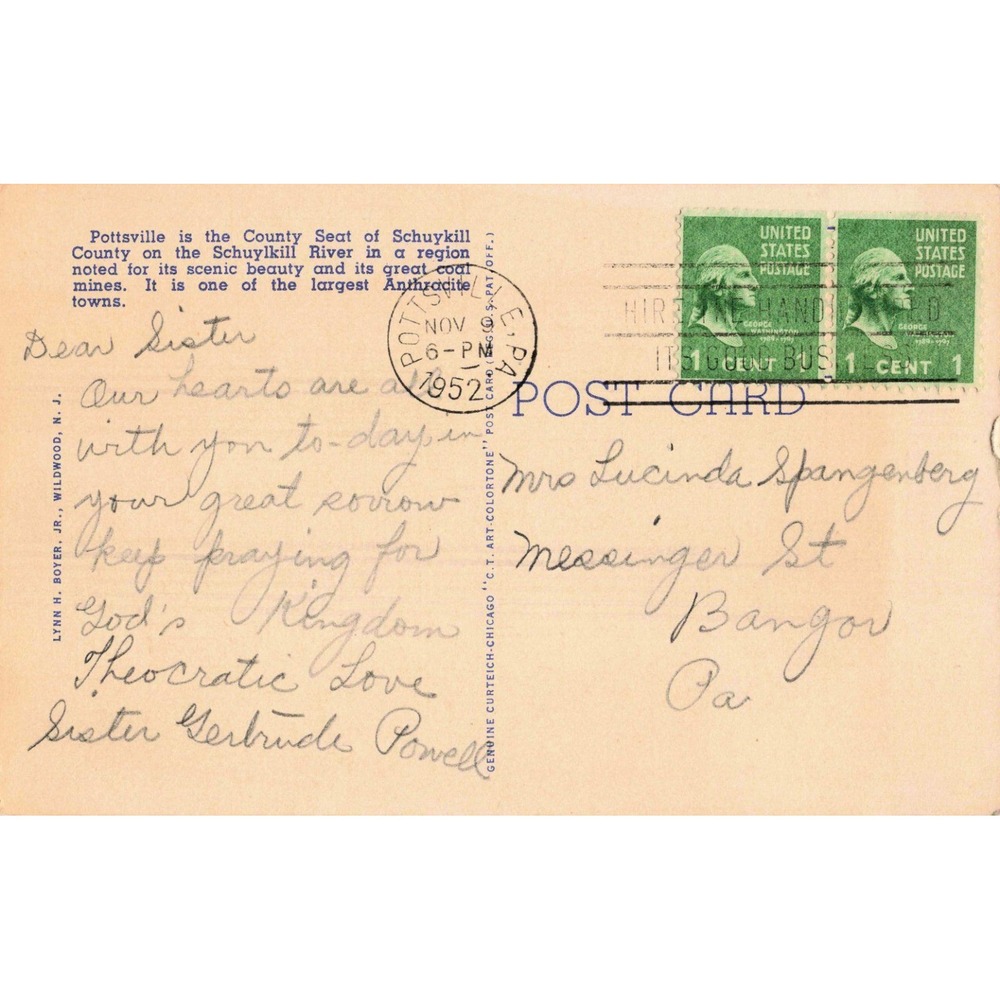 Pottsville is the County Seat of Schuykill
County on the Schuylkill River in a region
noted for its scenic beauty and its great coal
mines. It is one of the largest Anthracite
towns.
Dear Sister
Our hearts are all
with you to-day in
your great sorrow
keep praying for
God's Kingdom
Theocratic Love
Sister Gertrude Powell
LYNN H. BOYER, JR., WILDWOOD, N. J.
GENUINE CURTEICH-CHICAGO "C.T. ART-COLORTONE" POST CARD (REG. U.S. PAT. OFF.)
POTTSVILLE, PA.
NOV 9
6-PM
1952
HIRE THE HANDI D
IT'S GOOD BUSINESS
UNITED
STATES
POSTAGE
GEORGE
WASHINGTON
1789-1797
1 CENT 1
UNITED
STATES
POSTAGE
GEORGE
WASHINGTON
1789-1797
1 CENT 1
POST CARD
Mrs Lucinda Spangenberg
Messinger St
Bangor
Pa